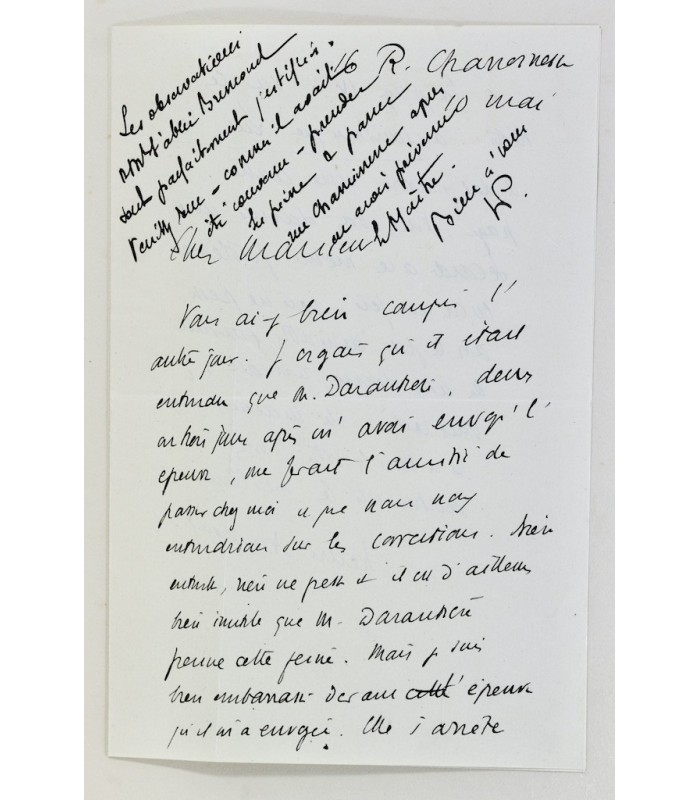 16 R. Chanoinesse
10 mai
Les observations
de l'abbé Bremond
sont parfaitement justifiées.
Veuillez donc - comme il avait
été convenu - prendre
la peine de passer
rue Chanoinesse après
en avoir prévenu
le Maître.
Bien à vous
Cher Monsieur
Vous ai-je bien compris l'
autre jour. Je croyais qu'il était
entendu que M. Darantiere, deux
ou trois jours après m'avoir envoyé l'
épreuve, me ferait l'amitié de
passer chez moi et que nous nous
entendrions sur les corrections. Bien
entendu, rien ne presse et il est d'ailleurs
bien inutile que M. Darantiere
prenne cette peine. Mais je suis
bien embarrassé devant cette épreuve
qu'il m'a envoyée. Elle s'arrête